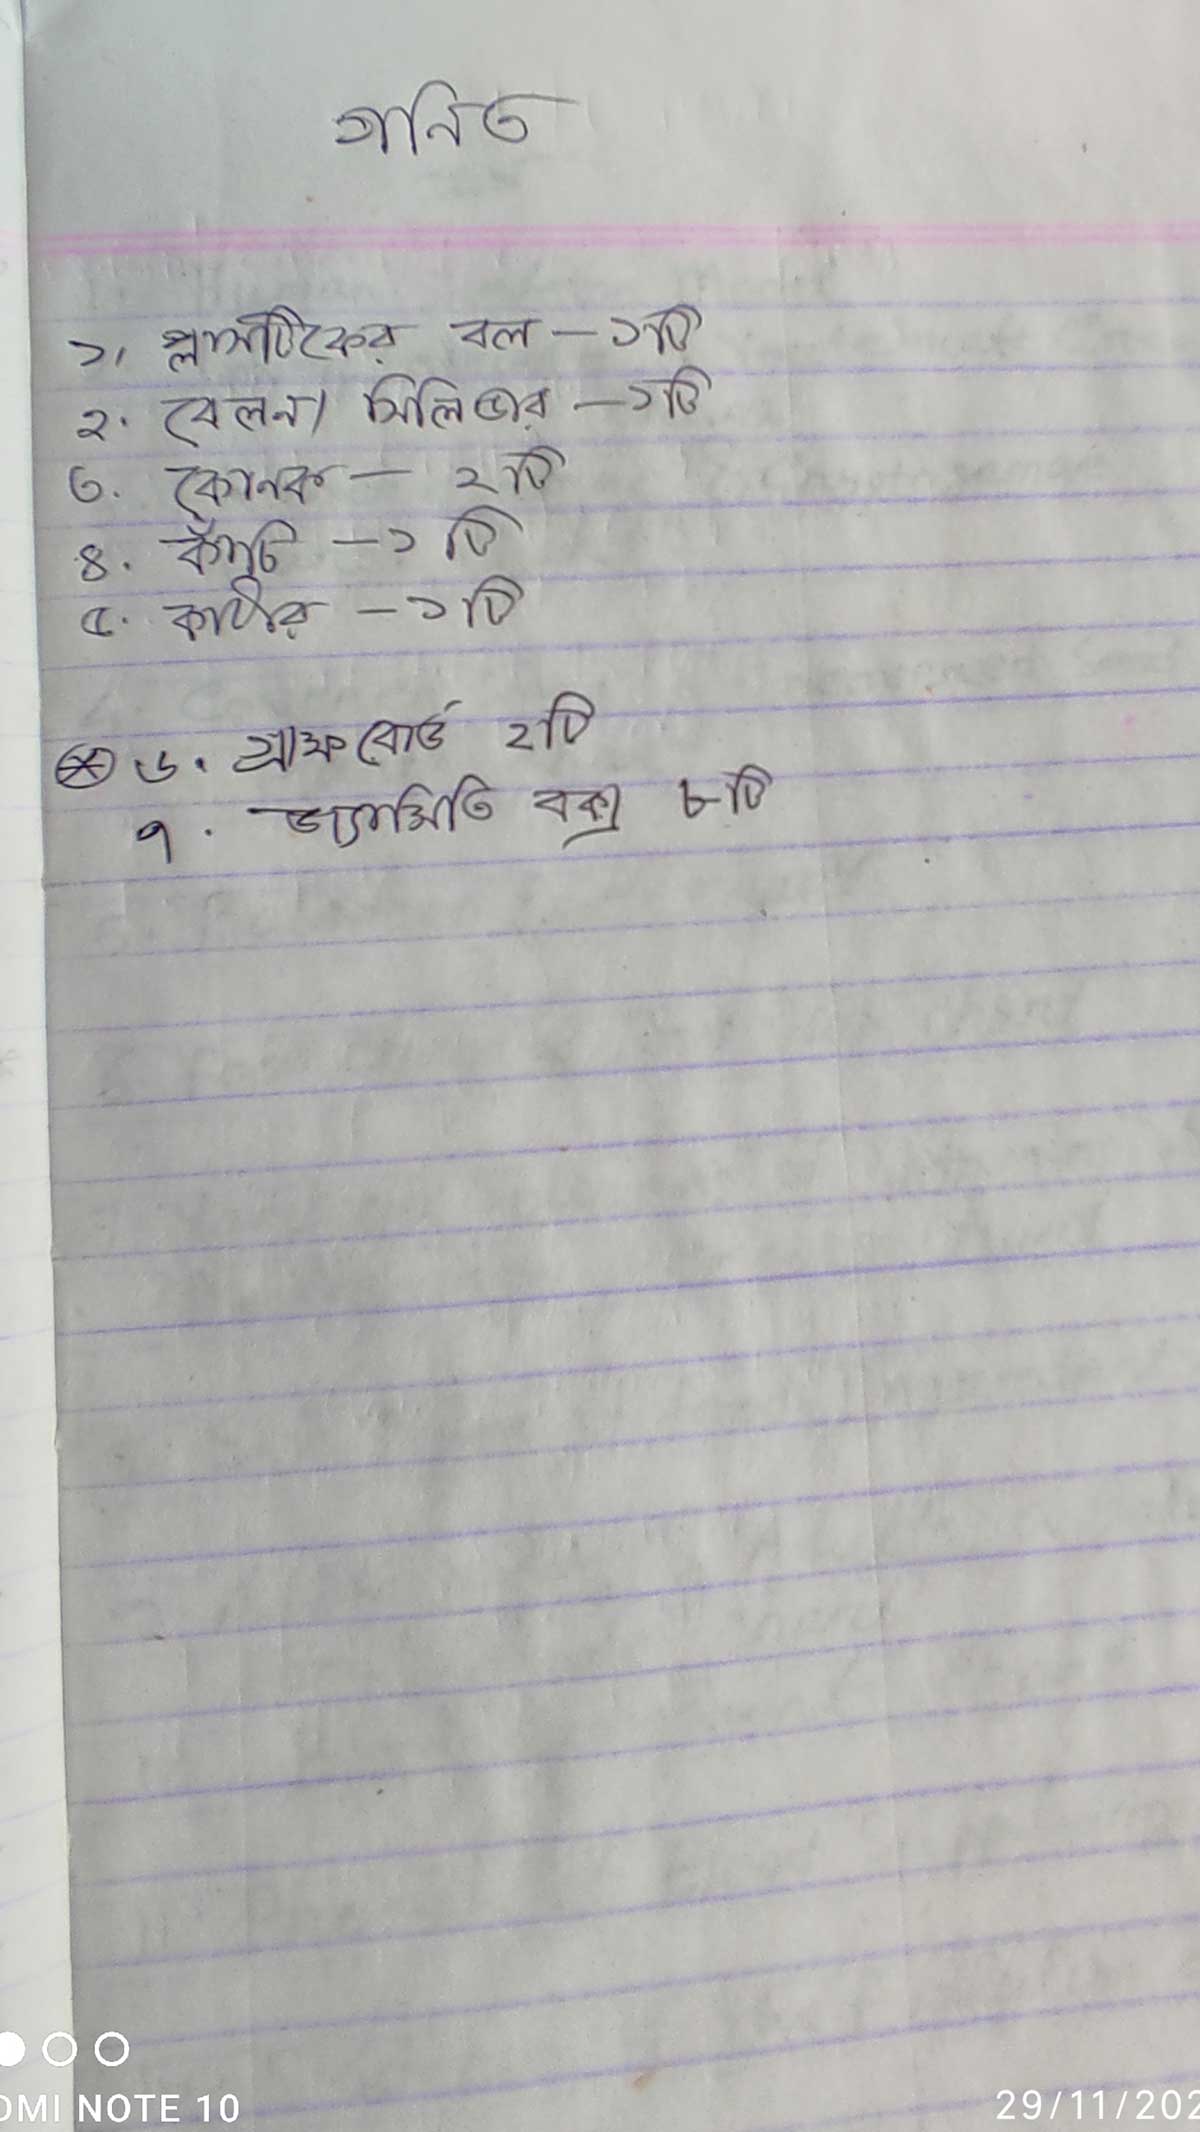 গনিত
১। প্লাসটিকের বল – ১টি
২. বেলন/ সিলিন্ডার – ১টি
৩. কোনক – ২টি
৪. কাঁচি – ১টি
৫. কাটার – ১টি
৬. গ্রাফ বোর্ড ২টি
৭. জ্যামিতি বক্স ৮টি
OMI NOTE 10
29/11/202